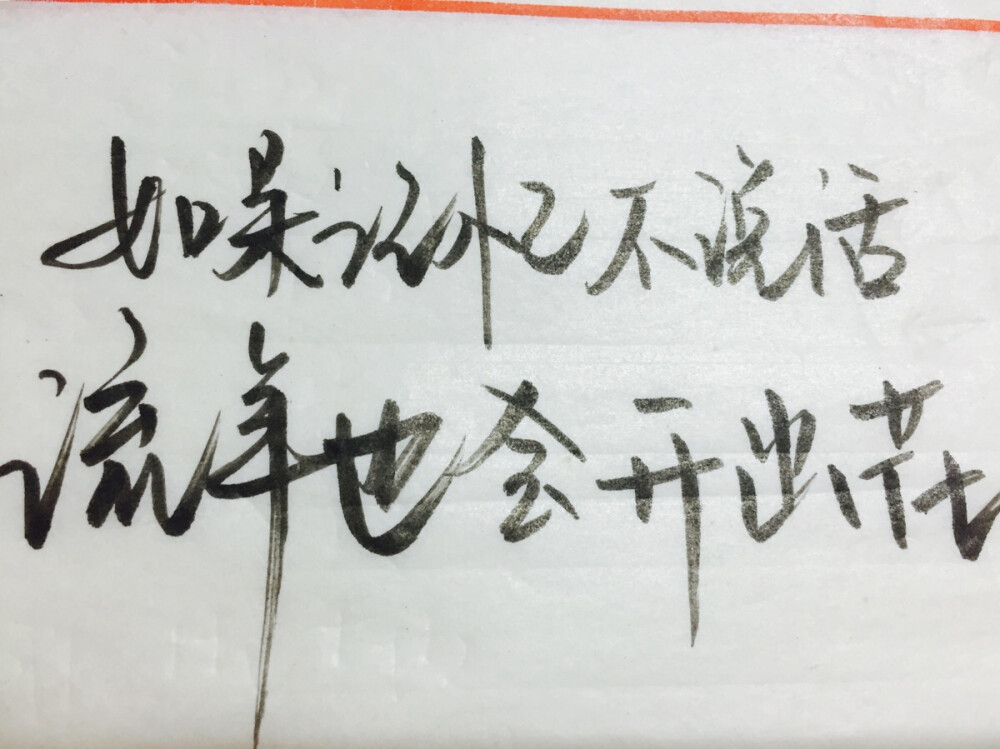 如果记忆不说话
流年也会开出花